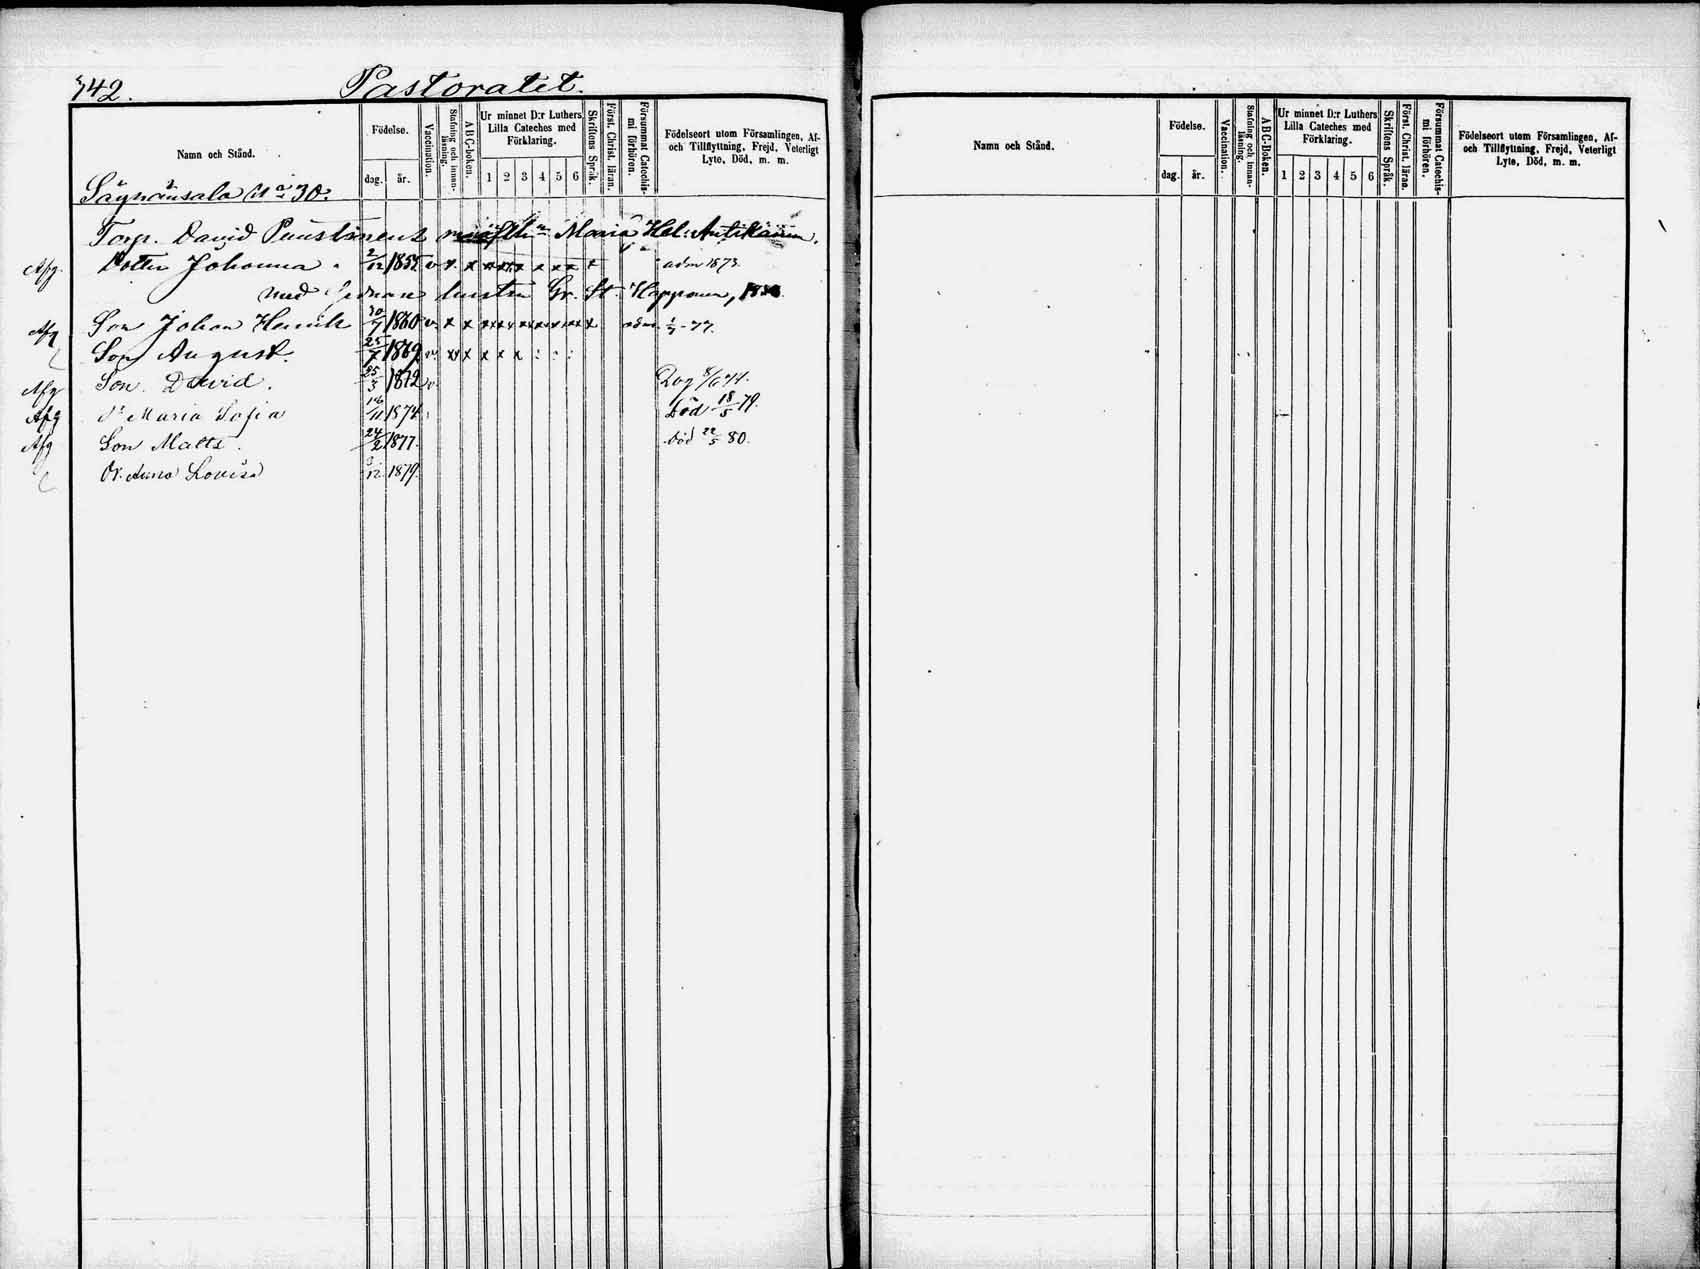 342. Pastoratet.
Namn och Stånd. Födelse. dag. år. Vaccination. Stafning och innanläsning. ABC-boken. Ur minnet D:r Luthers Lilla Cateches med Förklaring. 1 2 3 4 5 6 Skriftens Språk. Först. Christ. läran. Försummat Catechismi förhören. Födelseort utom Församlingen, Af- och Tillflyttning, Frejd, Veterligt Lyte, Död, m. m.
N:o 30.
Torp. David Maria Hel:
Afg. Dotter Johanna 2/12 1855 v. x x adm 1873.
med Gr. St. Happonen,
Afg Son Johan Henrik 30/7 1860 v. x x adm. 77.
Son August. 25/7 1869 v. x x x x x
Afg Son David. 25/3 1872 v.
Afg D:r Maria Sofia 16/11 1874. Död 18/5 79.
Afg Son Matts. 24/2 1877. Död 22/5 80.
Dr. Anna Lovisa 3/12 1879.
Namn och Stånd. Födelse. dag. år. Vaccination. Stafning och innanläsning. ABC-Boken. Ur minnet D:r Luthers Lilla Cateches med Förklaring. 1 2 3 4 5 6 Skriftens Språk. Först. Christ. läran. Försummat Catechismi förhören. Födelseort utom Församlingen, Af- och Tillflyttning, Frejd, Veterligt Lyte, Död, m. m.